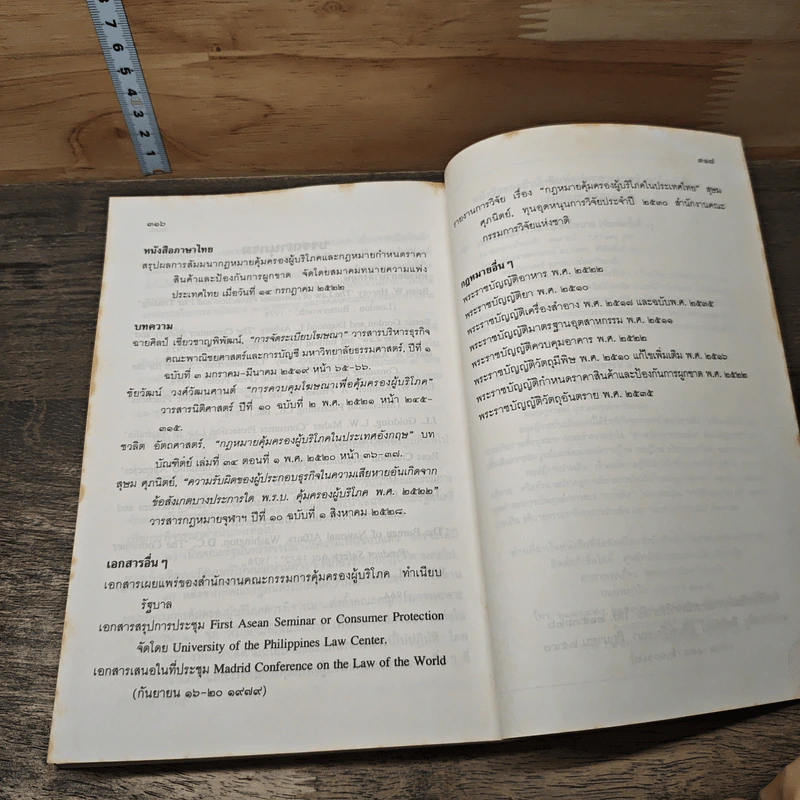 ๓๑๖
หนังสือภาษาไทย
สรุปผลการสัมมนากฎหมายคุ้มครองผู้บริโภคและกฎหมายกำหนดราคา
สินค้าและป้องกันการผูกขาด จัดโดยสมาคมทนายความแห่ง
ประเทศไทย เมื่อวันที่ ๑๔ กรกฎาคม ๒๕๒๒
บทความ
ฉายศิลป์ เชี่ยวชาญพิพัฒน์, "การจัดระเบียบโฆษณา" วารสารบริหารธุรกิจ
คณะพาณิชยศาสตร์และการบัญชี มหาวิทยาลัยธรรมศาสตร์, ปีที่ ๑
ฉบับที่ ๓ มกราคม-มีนาคม ๒๕๑๙ หน้า ๖๕-๖๖.
ชัยวัฒน์ วงศ์วัฒนศานต์ "การควบคุมโฆษณาเพื่อคุ้มครองผู้บริโภค"
วารสารนิติศาสตร์ ปีที่ ๑๐ ฉบับที่ ๒ พ.ศ. ๒๕๒๑ หน้า ๒๔๕-
๓๑๕.
ชวลิต อัตถศาสตร์, "กฎหมายคุ้มครองผู้บริโภคในประเทศอังกฤษ" บท
บัณฑิตย์ เล่มที่ ๓๔ ตอนที่ ๑ พ.ศ. ๒๕๒๐ หน้า ๓๖-๓๗.
สุษม ศุภนิตย์, "ความรับผิดของผู้ประกอบธุรกิจในความเสียหายอันเกิดจาก
ข้อสังเกตบางประการใด พ.ร.บ. คุ้มครองผู้บริโภค พ.ศ. ๒๕๒๒"
วารสารกฎหมายจุฬาฯ ปีที่ ๑๐ ฉบับที่ ๑ สิงหาคม ๒๕๒๘.
เอกสารอื่น ๆ
เอกสารเผยแพร่ของสำนักงานคณะกรรมการคุ้มครองผู้บริโภค ทำเนียบ
รัฐบาล
เอกสารสรุปการประชุม First Asean Seminar or Consumer Protection
จัดโดย University of the Philippines Law Center.
เอกสารเสนอในที่ประชุม Madrid Conference on the Law of the World
(กันยายน ๑๖-๒๐ ๑๙๗๙)
๓๑๗
รายงานการวิจัย เรื่อง "กฎหมายคุ้มครองผู้บริโภคในประเทศไทย" สุษม
ศุภนิตย์, ทุนอุดหนุนการวิจัยประจำปี ๒๕๓๐ สำนักงานคณะ
กรรมการวิจัยแห่งชาติ
กฎหมายอื่น ๆ
พระราชบัญญัติอาหาร พ.ศ. ๒๕๒๒
พระราชบัญญัติยา พ.ศ. ๒๕๑๐
พระราชบัญญัติเครื่องสำอาง พ.ศ. ๒๕๑๗ และฉบับพ.ศ. ๒๕๓๕
พระราชบัญญัติมาตรฐานอุตสาหกรรม พ.ศ. ๒๕๑๑
พระราชบัญญัติควบคุมอาคาร พ.ศ. ๒๕๒๒
พระราชบัญญัติวัตถุมีพิษ พ.ศ. ๒๕๑๐ แก้ไขเพิ่มเติม พ.ศ. ๒๕๑๖
พระราชบัญญัติกำหนดราคาสินค้าและป้องกันการผูกขาด พ.ศ. ๒๕๒๒
พระราชบัญญัติวัตถุอันตราย พ.ศ. ๒๕๓๕